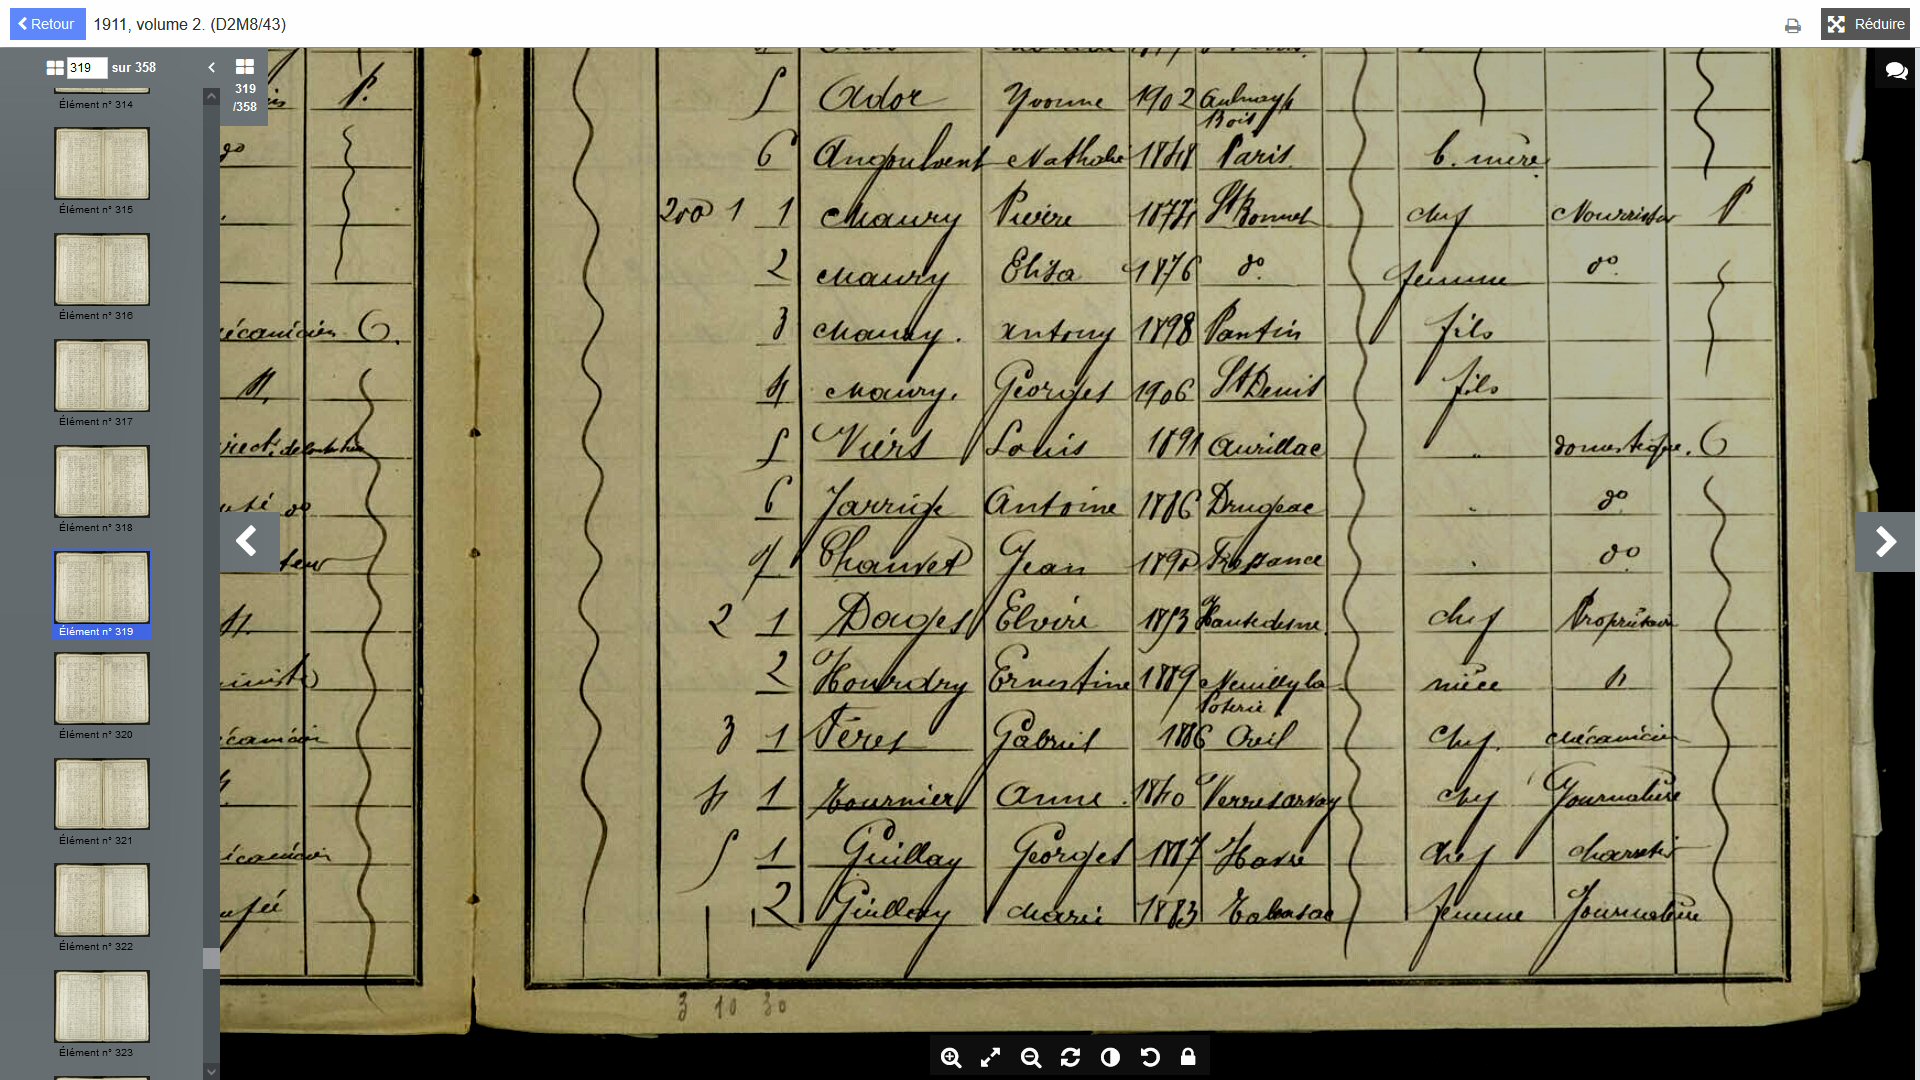 Retour 1911, volume 2. (D2M8/43) Réduire
319 sur 358
319
/358
Élément n° 314
Élément n° 315
Élément n° 316
Élément n° 317
Élément n° 318
Élément n° 319
Élément n° 320
Élément n° 321
Élément n° 322
Élément n° 323
P.
do
écanicien C.
do
5 Ador Yvonne 1902
Bois
6 Angoulvent Nathalie 1848 Paris b. mère
200 1 1 Maury Pierre St Bonnet chef Nourrisseur P
2 Maury Elisa 1876 do femme do
3 Maury. Antony 1898 Pantin fils
4 Maury. Georges 1906 St Denis fils
5 Viers Louis 1891 Aurillac " domestique. C
6 Jarrige Antoine 1886 Drugeac " do
7 Chauvet Jean 1890 " do
2 1 Douges Elvire 1853 chef Propriétaire
2 Hourdry Ernestine 1889 Neuilly la nièce n
Poterie
3 1 Féret Gabriel 1886 Creil chef. Mécanicien
4 1 Tournier Anne 1840 chef Journalière
5 1 Guillay Georges 1887 Havre chef charretier
2 Guillay Marie 1883 femme Journalière
3 10 30